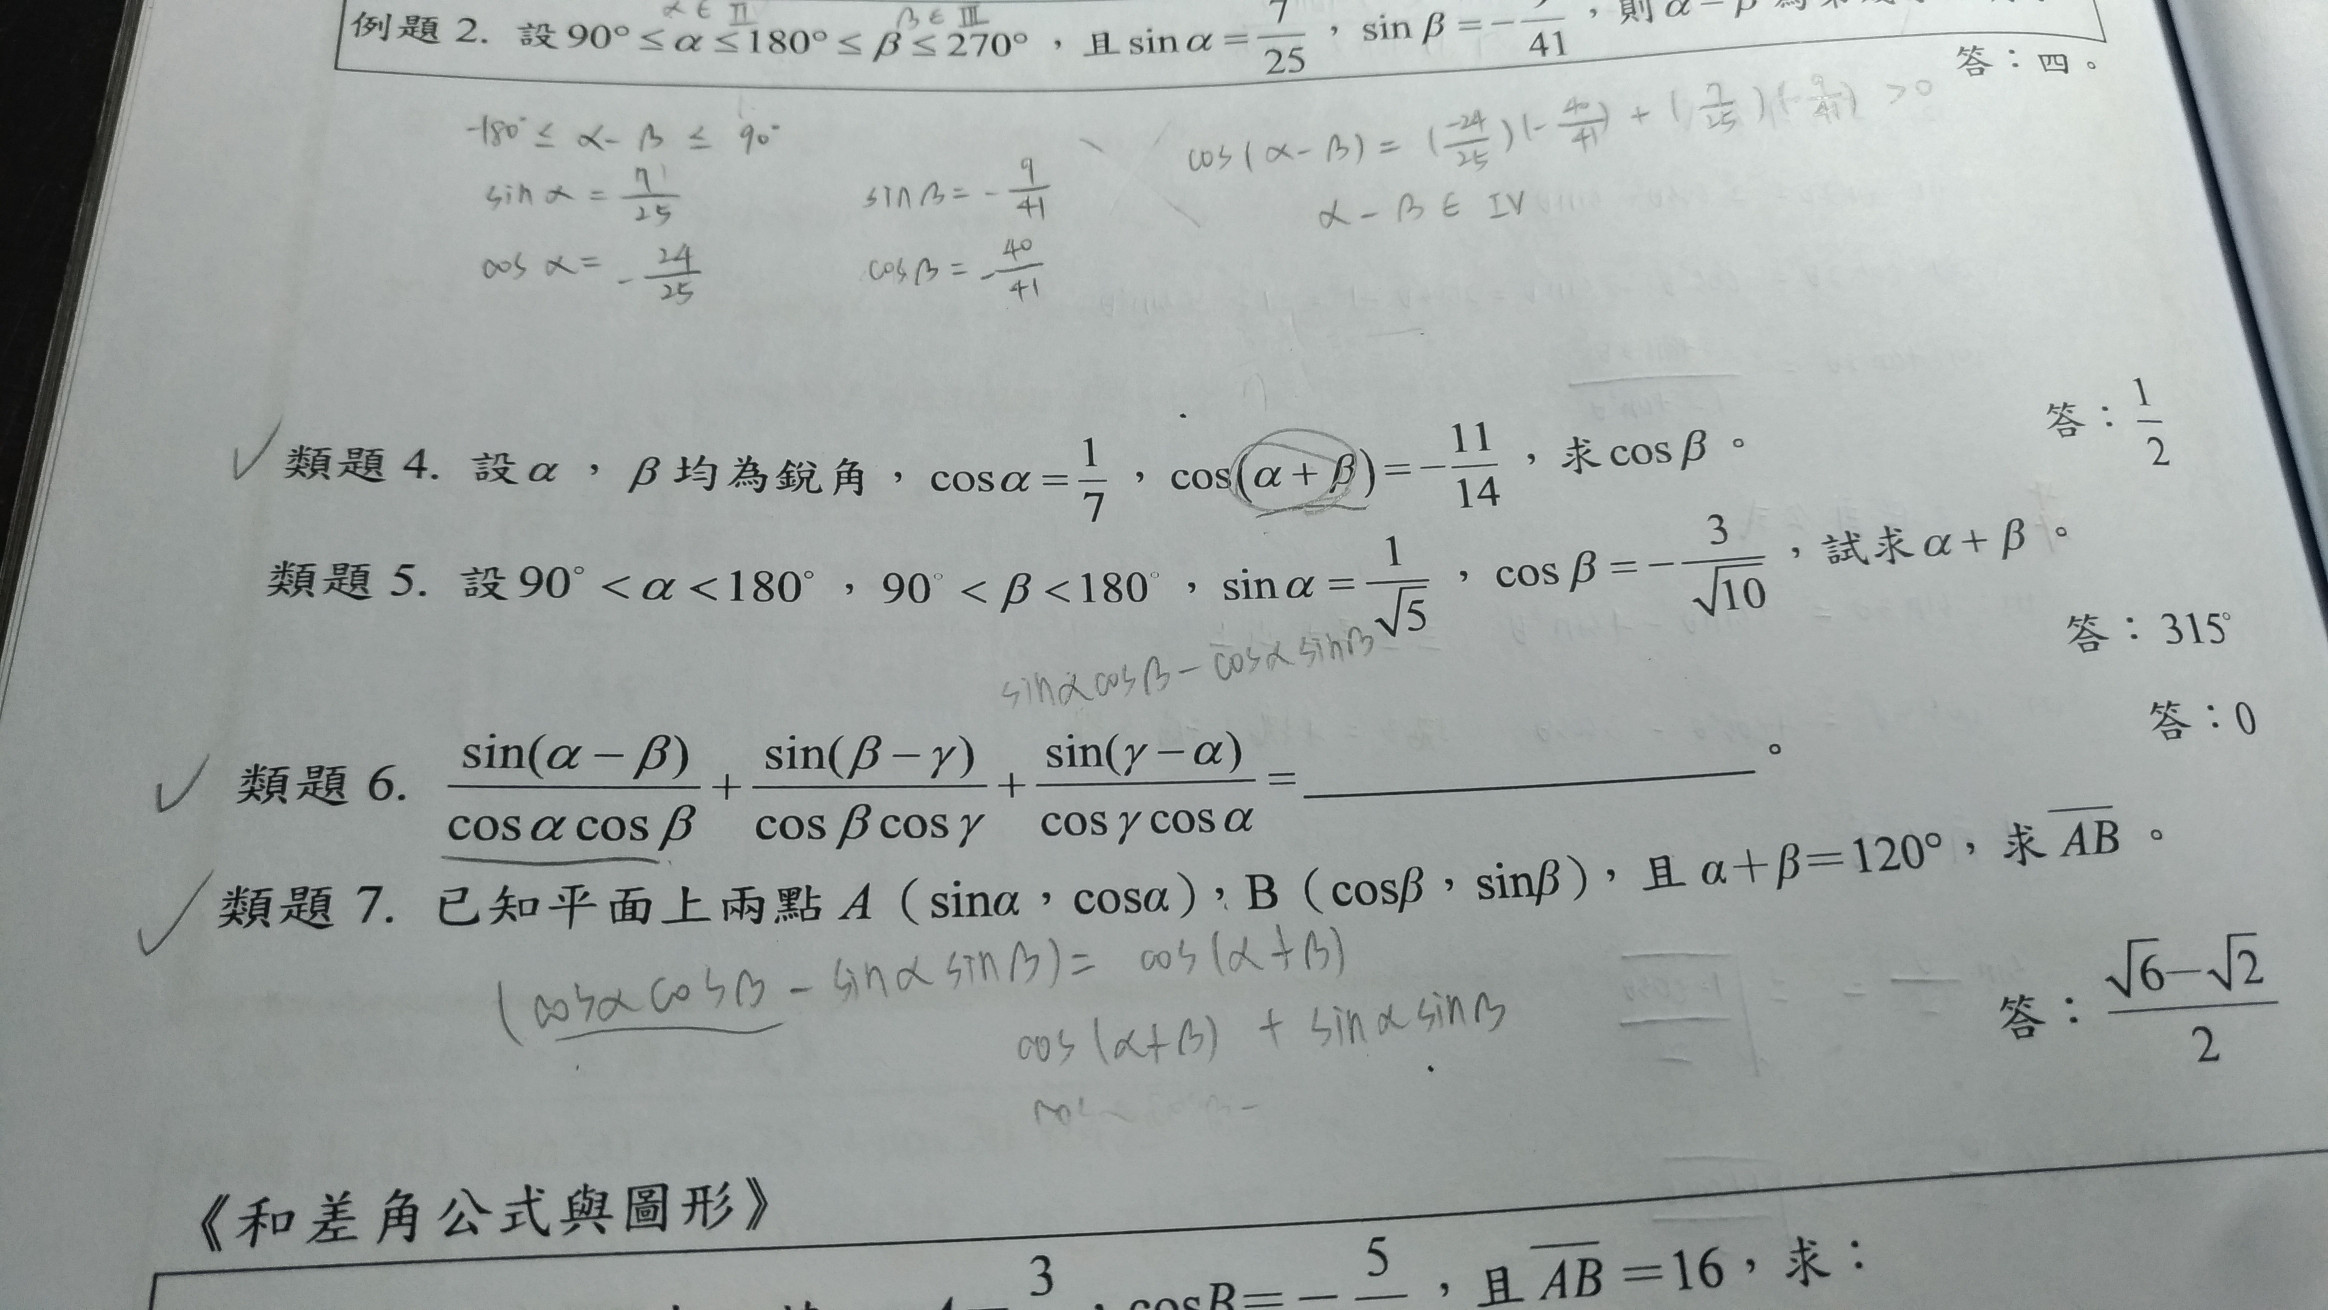 α ∈ II β ∈ III
例題 2. 設 90° ≤ α ≤ 180° ≤ β ≤ 270°，且 sin α = 7/25，sin β = − /41，則 α − β
答：四。
-180° ≤ α - β ≤ 90°
sin α = 7/25 sin β = - 9/41 cos(α - β) = (-24/25)(- 40/41) + (7/25)(- 9/41) > 0
cos α = - 24/25 cos β = - 40/41 α - β ∈ IV
類題 4. 設 α，β 均為銳角，cos α = 1/7，cos(α + β) = − 11/14，求 cos β。 答：1/2
類題 5. 設 90° < α < 180°，90° < β < 180°，sin α = 1/√5，cos β = − 3/√10，試求 α + β。
答：315°
sinα cosβ - cosα sinβ
類題 6. sin(α − β)/cos α cos β + sin(β − γ)/cos β cos γ + sin(γ − α)/cos γ cos α = ＿＿＿＿。 答：0
類題 7. 已知平面上兩點 A（sinα，cosα），B（cosβ，sinβ），且 α＋β＝120°，求 AB。
答：√6−√2/2
(cosα cosβ - sinα sinβ) = cos(α+β)
cos(α+β) + sinα sinβ
《和差角公式與圖形》
3，cosB＝− 5，且 AB＝16，求：